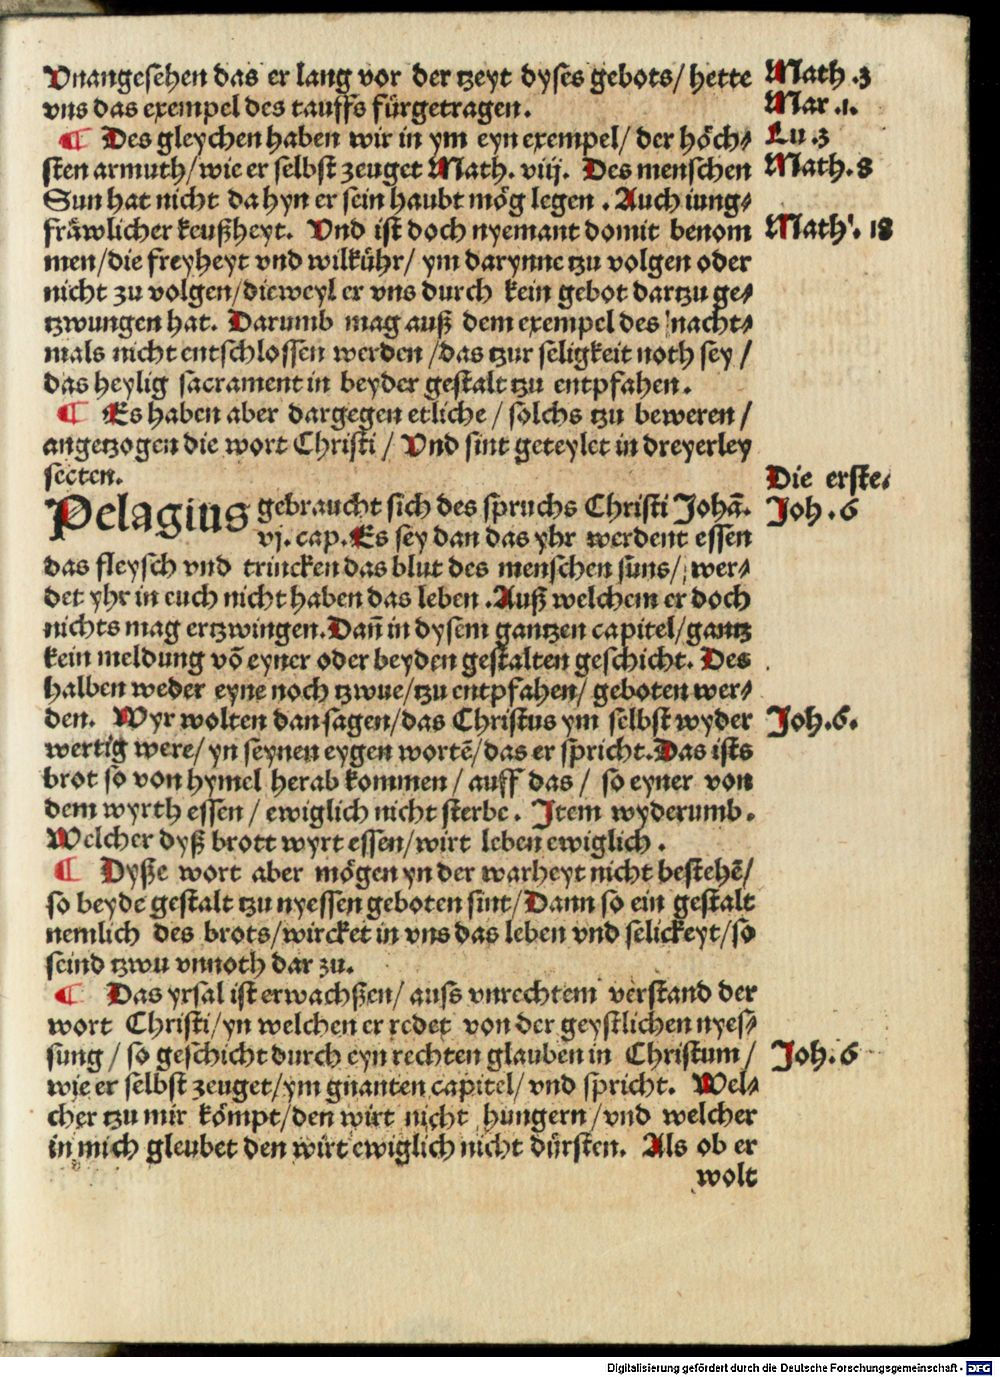 Vnangesehen das er lang vor der tzeyt dyses gebots/ hette Math .3
vns das exempel des tauffs fürgetragen. Mar .1.
¶ Des gleychen haben wir in ym eyn exempel/ der höch⸗ Lu .3
sten armuth/ wie er selbst zeuget Math. viij. Des menschen Math. 8
Sun hat nicht da hyn er sein haubt mög legen . Auch iung⸗
fräwlicher keußheyt. Vnd ist doch nyemant domit benom Math'. 18
men/ die freyheyt vnd wilkühr/ ym darynne tzu volgen oder
nicht zu volgen/ dieweyl er vns durch kein gebot dartzu ge⸗
tzwungen hat. Darumb mag auß dem exempel des nacht⸗
mals nicht entschlossen werden / das tzur seligkeit noth sey /
das heylig sacrament in beyder gestalt tzu entpfahen .
¶ Es haben aber dargegen etliche / solchs tzu beweren /
angetzogen die wort Christi / Vnd sint geteylet in dreyerley
secten. Die erste.
Pelagius gebraucht sich des spruchs Christi Johā. Joh . 6
vj. cap. Es sey dan das yhr werdent essen
das fleysch vnd trincken das blut des menschen suns/ wer⸗
det yhr in euch nicht haben das leben . Auß welchem er doch
nichts mag ertzwingen. Dañ in dysem gantzen capitel/ gantz
kein meldung võ eyner oder beyden gestalten geschicht. Des
halben weder eyne noch tzwue/ tzu entpfahen/ geboten wer⸗
den. Wyr wolten dan sagen/ das Christus ym selbst wyder Joh. 6.
wertig were/ yn seynen eygen wortē/ das er spricht. Das ists
brot so von hymel herab kommen / auff das / so eyner von
dem wyrth essen / ewiglich nicht sterbe . Item wyderumb .
Welcher dyß brott wyrt essen/ wirt leben ewiglich .
¶ Dyße wort aber mögen yn der warheyt nicht bestehē/
so beyde gestalt tzu nyessen geboten sint/ Dann so ein gestalt
nemlich des brots/ wircket in vns das leben vnd selickeyt/ so
seind tzwu vnnoth dar zu.
¶ Das yrsal ist erwachßen/ auss vnrechtem verstand der
wort Christi/ yn welchen er redet von der geystlichen nyes⸗
sung / so geschicht durch eyn rechten glauben in Christum / Joh. 6
wie er selbst zeuget/ ym gnanten capitel/ vnd spricht. Wel⸗
cher tzu mir kömpt/ den wirt nicht hungern / vnd welcher
in mich gleubet den wirt ewiglich nicht dürsten. Als ob er
wolt
Digitalisierung gefördert durch die Deutsche Forschungsgemeinschaft - DFG